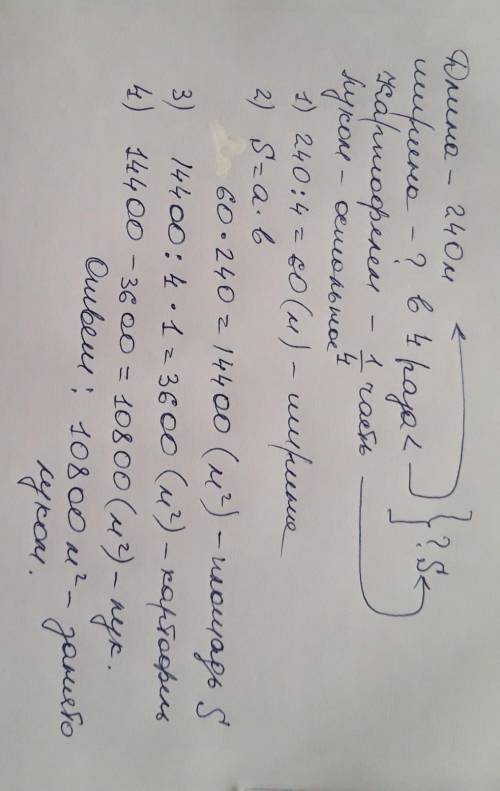 Длина - 240м
ширина - ? в 4 раза < } ? S
Картофелем - 1/4 часть
Луком - остальное
1) 240 : 4 = 60 (м) - ширина
2) S = a · b
60 · 240 = 14400 (м²) - площадь S
3) 14400 : 4 · 1 = 3600 (м²) - картофель
4) 14400 - 3600 = 10800 (м²) - лук.
Ответ: 10800 м² - занято
луком.